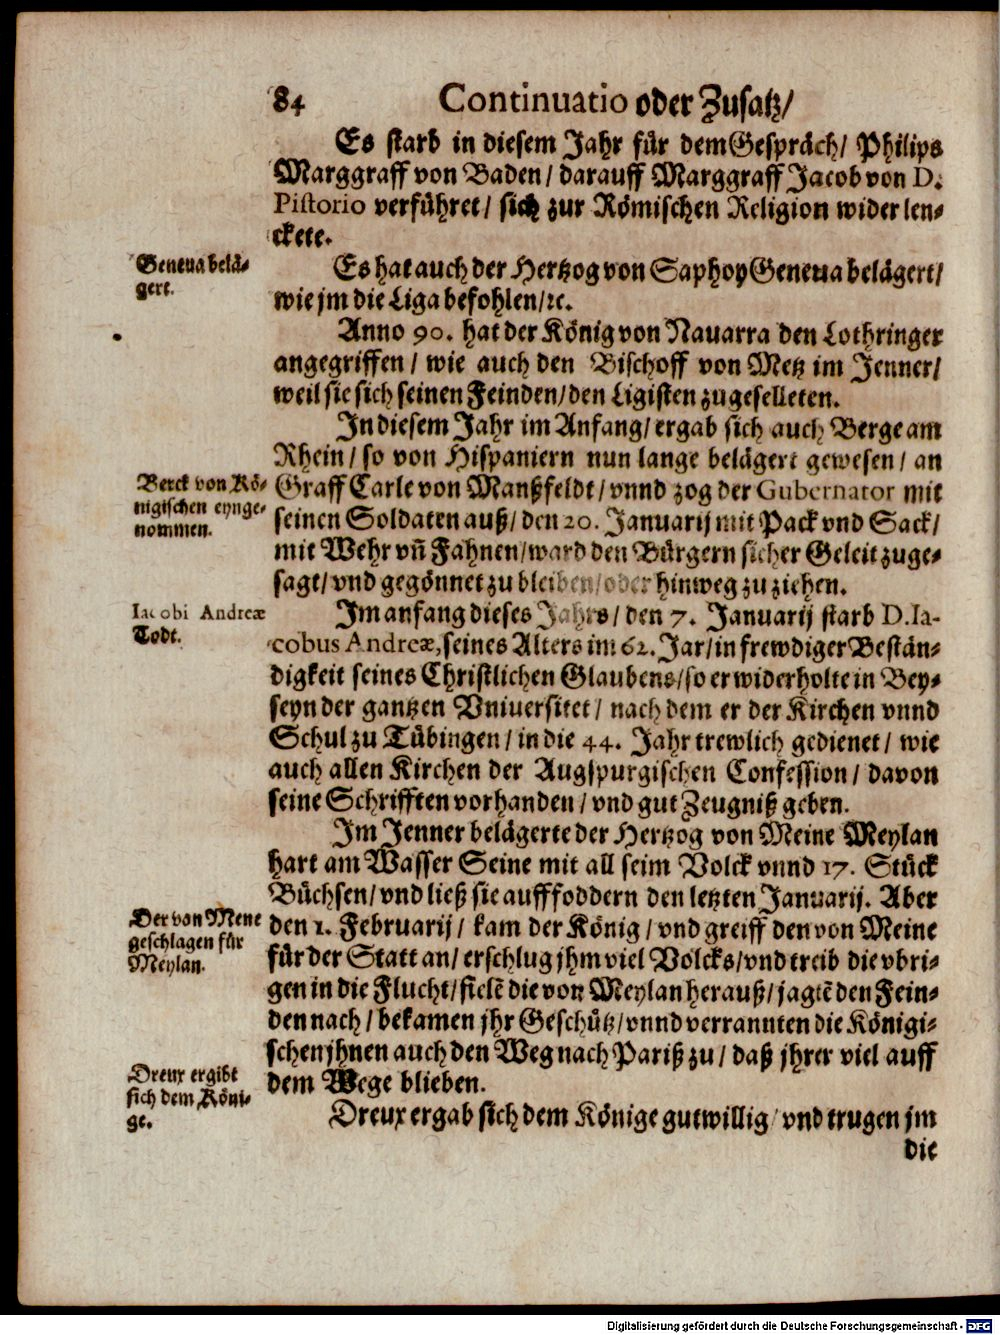 84 Continuatio oder Zusatz/
Es starb in diesem Jahr für dem Gespräch/ Philips
Marggraff von Baden/ darauff Marggraff Jacob von D.
Pistorio verführet/ sich zur Römischen Religion wider len-
ckete.
Geneua belä-
gert.
Es hat auch der Hertzog von Saphoy Geneua belägert/
wie jm die Liga befohlen/ ꝛc.
Anno 90. hat der König von Nauarra den Lothringer
angegriffen/ wie auch den Bischoff von Metz im Jenner/
weil sie sich seinen Feinden/ den Ligisten zugeselleten.
In diesem Jahr im Anfang/ ergab sich auch Berge am
Rhein/ so von Hispaniern nun lange belägert gewesen/ an
Berck von Kö-
nigischen eynge-
nommen.
Graff Carle von Manßfeldt/ vnnd zog der Gubernator mit
seinen Soldaten auß/ den 20. Januarij mit Pack vnd Sack/
mit Wehr vñ Fahnen/ ward den Bürgern sicher Geleit zuge-
sagt/ vnd gegönnet zu bleiben/ oder hinweg zu ziehen.
Iacobi Andreæ
Todt.
Im anfang dieses Jahrs/ den 7. Januarij starb D. Ia-
cobus Andreæ, seines Alters im 62. Jar/ in frewdiger Bestän-
digkeit seines Christlichen Glaubens/ so er widerholte in Bey-
seyn der gantzen Vniuersitet/ nach dem er der Kirchen vnnd
Schul zu Tübingen/ in die 44. Jahr trewlich gedienet/ wie
auch allen Kirchen der Augspurgischen Confession/ davon
seine Schrifften vorhanden/ vnd gut Zeugniß geben.
Im Jenner belägerte der Hertzog von Meine Meylan
hart am Wasser Seine mit all seim Volck vnnd 17. Stück
Büchsen/ vnd ließ sie aufffoddern den letzten Januarij. Aber
Der von Mene
geschlagen für
Meylan.
den 1. Februarij/ kam der König/ vnd greiff den von Meine
für der Statt an/ erschlug jhm viel Volcks/ vnd treib die vbri-
gen in die Flucht/ fielē die von Meylan herauß/ jagtē den Fein-
den nach/ bekamen jhr Geschütz/ vnnd verrannten die Königi-
schen jhnen auch den Weg nach Pariß zu/ daß jhrer viel auff
dem Wege blieben.
Dreux ergibt
sich dem Köni-
ge.
Dreux ergab sich dem Könige gutwillig/ vnd trugen jm
die
Digitalisierung gefördert durch die Deutsche Forschungsgemeinschaft - DFG